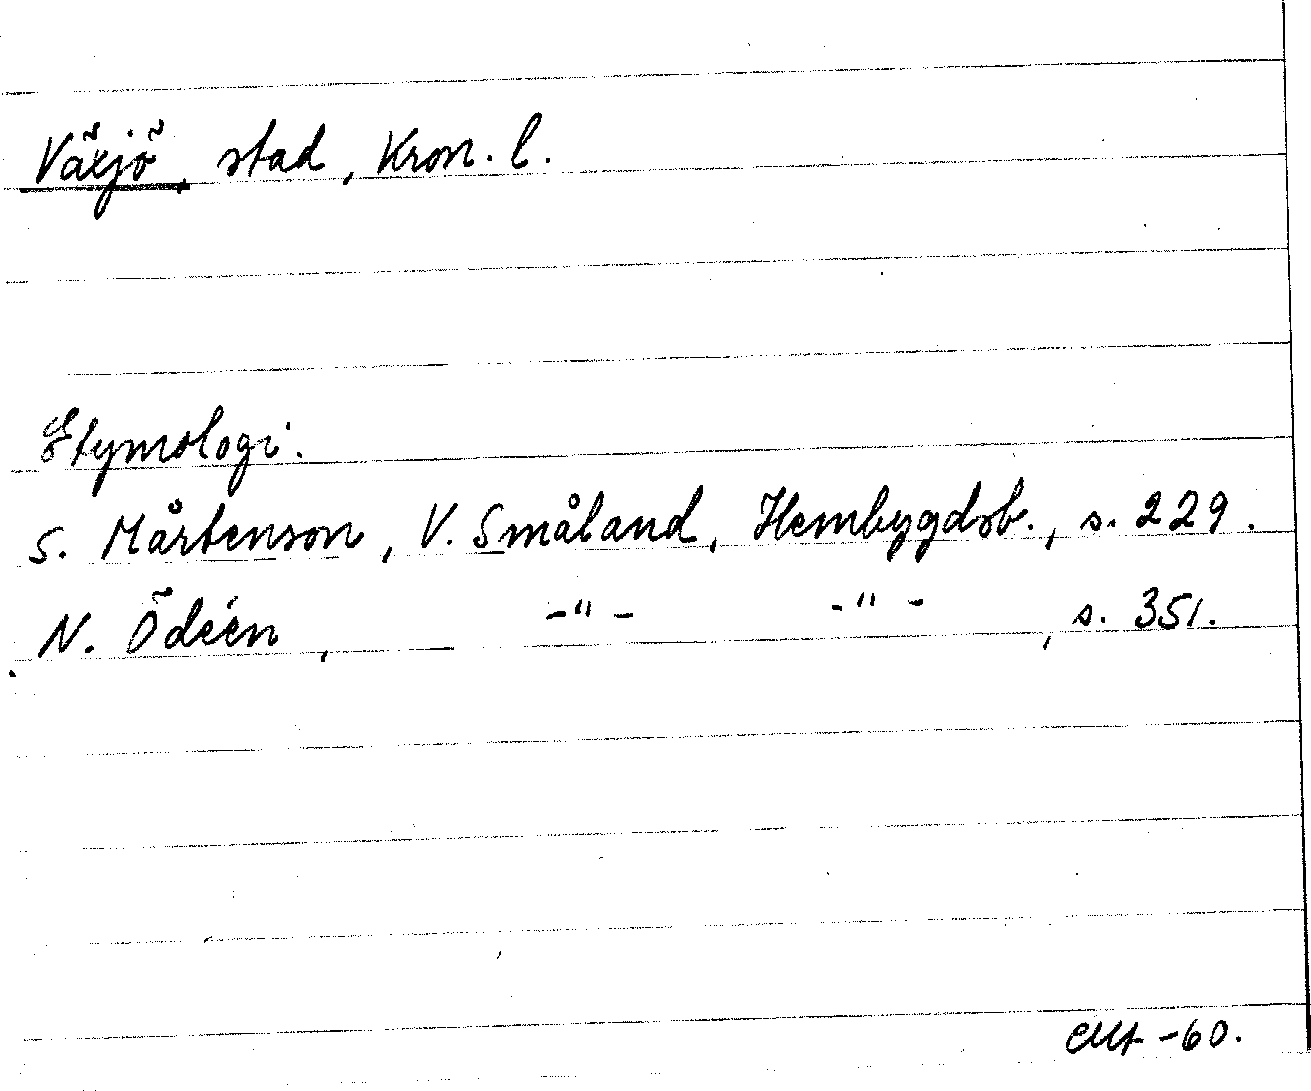 Växjö, stad, Kron. l.
Etymologi.
S. Mårtenson, V. Småland, Hembygdsb., s. 229.
N. Ödéen, -"- -"-, s. 351.
-60.